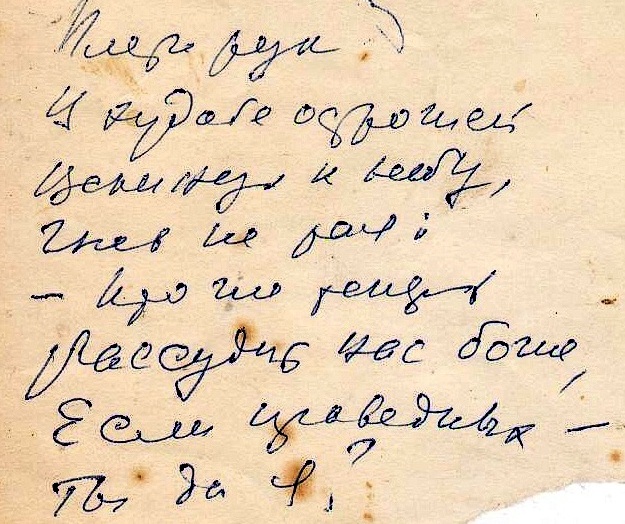 Плети рук
И худобе одрожей
вскинул к небу,
Гнев не тая:
– Кто же
Рассудит нас боже,
Если праведных –
Ты да я?